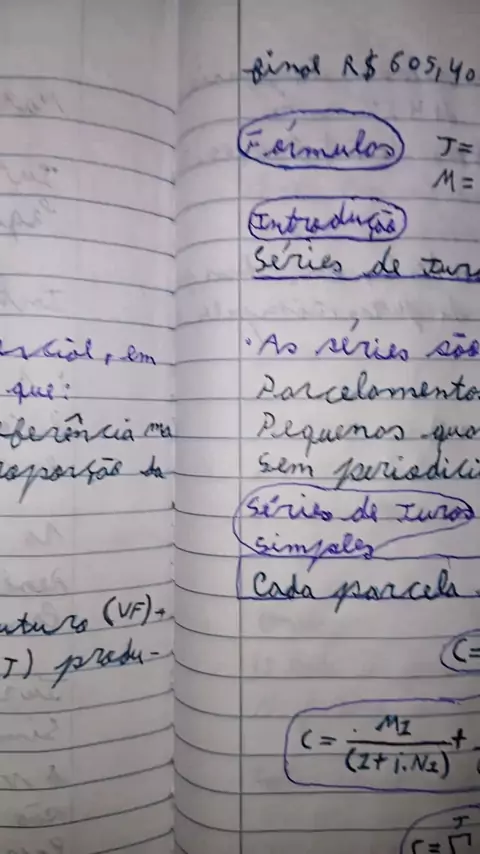 encial, em
que:
eferência na
roporção da
uturo (VF) +
J) produ-
final R$ 605,40
Fórmulas J=
M=
Introdução
Séries de Jur
• As séries são
Parcelamento
Pequenos qua
Sem periodici
Séries de Juros
Simples
Cada parcela
C=
C = M1/(1+i.N1) +